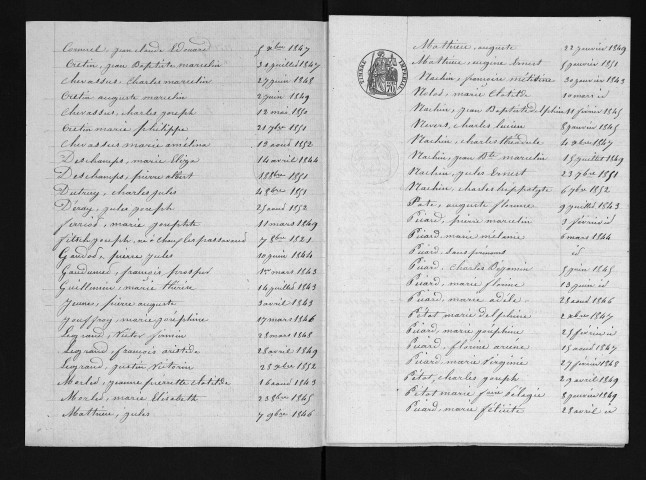 Cornuel, jean claude Edouard 5 xbre 1847
Cretin, jean Baptiste marcelin 31 juillet 1847
Chevassus, Charles marcelin 27 juin 1848
Cretin auguste marcelin 2 juin 1849
Chevassus, charles joseph 12 mai 1850
Cretin marie philippe 21 7bre 1851
Chevassus marie amelina 13 aout 1852
Deschamps, marie Eliza 14 avril 1844
Deschamps, pierre albert 18 8bre 1851
Dutruy, charles jules 4 8bre 1851
Déray, jules joseph 25 aout 1852
ferriod, marie josephte 11 mars 1849
7 8bre 1821
Gandod, pierre jules 30 juin 1844
Gaudumier, francois, prosper 15 mars 1843
Guillemin, marie thérèse 14 juillet 1843
Jeunet, pierre auguste 3 avril 1843
Jouffroy, marie joséphine 17 mars 1846
Legrand, Victor firmin 28 mars 1848
Legrand, francois aristide 28 avril 1849
Legrand, justin Victorin 28 xbre 1852
Morled, jeanne pierrette clotilde 16 aout 1843
Morled, marie Elisabeth 23 8bre 1845
Matthieu, jules 7 9bre 1846
TIMBRE IMPERIAL
Matthieu, auguste 22 janvier 1849
Matthieu, eugène ernest 5 janvier 1851
Machin, francoise 30 janvier 1843
marie clotilde 10 mars id
Machin, jean Baptiste delphin 11 février 1845
Nevers, charles lucien 8 janvier 1845
Machin, charles théodule 4 xbre 1847
Machin, jean Bte marcelin 15 juillet 1849
Machin, jules ernest 23 7bre 1851
Machin, charles hippolyte 6 7bre 1852
Pate, auguste 9 juillet 1843
Picard, pierre marcelin 3 février id
Picard, marie mélanie 6 mars 1844
Picard, sans prénoms id
Picard, Charles 5 juin 1845
Picard, marie 13 juin id
Picard, marie adèle 28 aout 1846
Petot marie delphine 2 xbre 1847
Picard, marie joséphine 25 février id
Picard, arsene 15 aout 1847
Picard, marie Virginie 27 février 1848
Petot, charles joseph 29 avril 1849
Petot marie Pélagie 8 janvier 1849
Picard, marie félicité 28 avril id